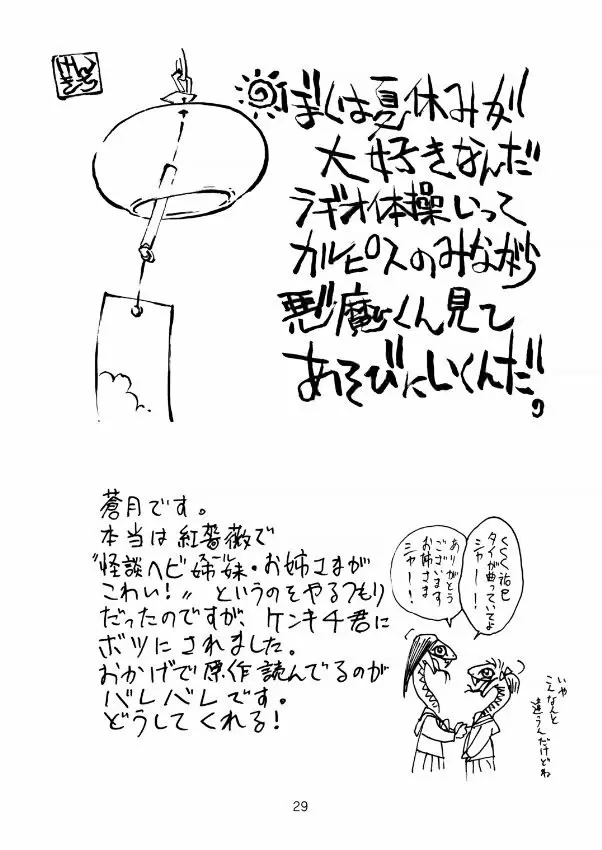 ぼくは夏休みが
大好きなんだ
ラヂオ体操いって
カルピスのみながら
悪魔くん見て
あそびにいくんだ。
蒼月です。
本当は紅薔薇で
〝怪談ヘビ姉妹・お姉さまが
こわい！〟というのをやるつもり
だったのですが、ケンキチ君に
ボツにされました。
おかげで原作読んでるのが
バレバレです。
どうしてくれる！
くくく祐巳
タイが曲っていてよ
シャーー！
ありがとう
ございます
お姉さま
シャーー！！
いや
こんなんと
違うんだけどね
29